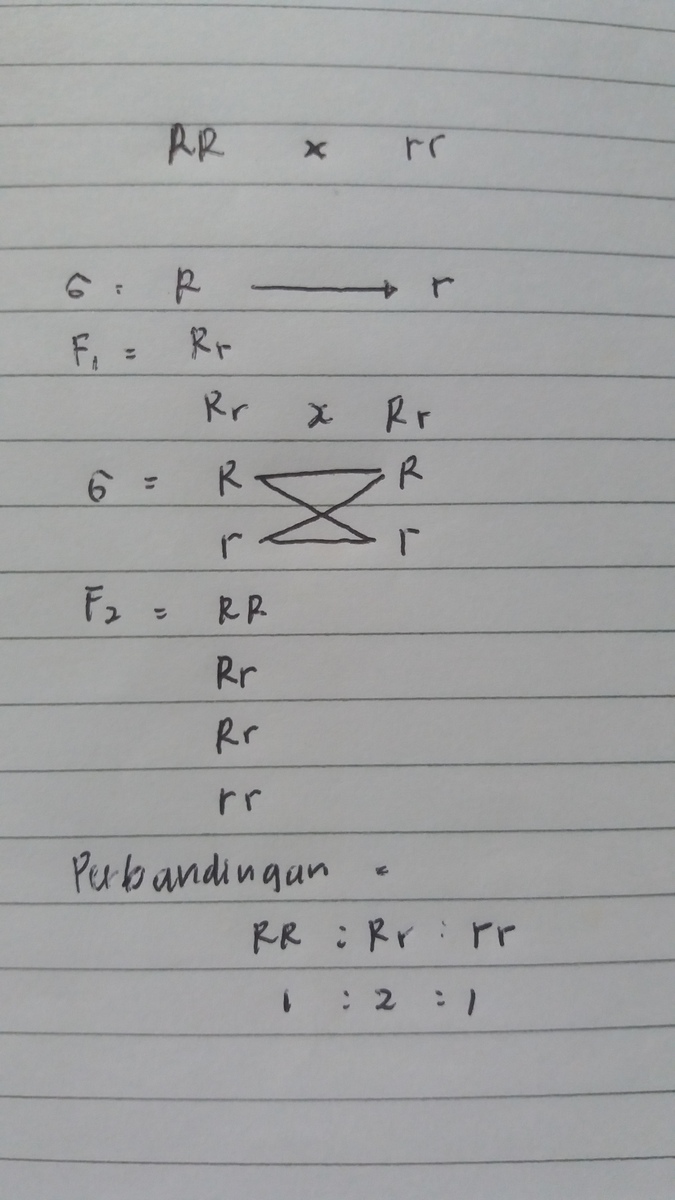 RR x rr
G : R → r
F₁ = Rr
Rr x Rr
G = R R
r r
F₂ = RR
Rr
Rr
rr
Perbandingan =
RR : Rr : rr
1 : 2 : 1